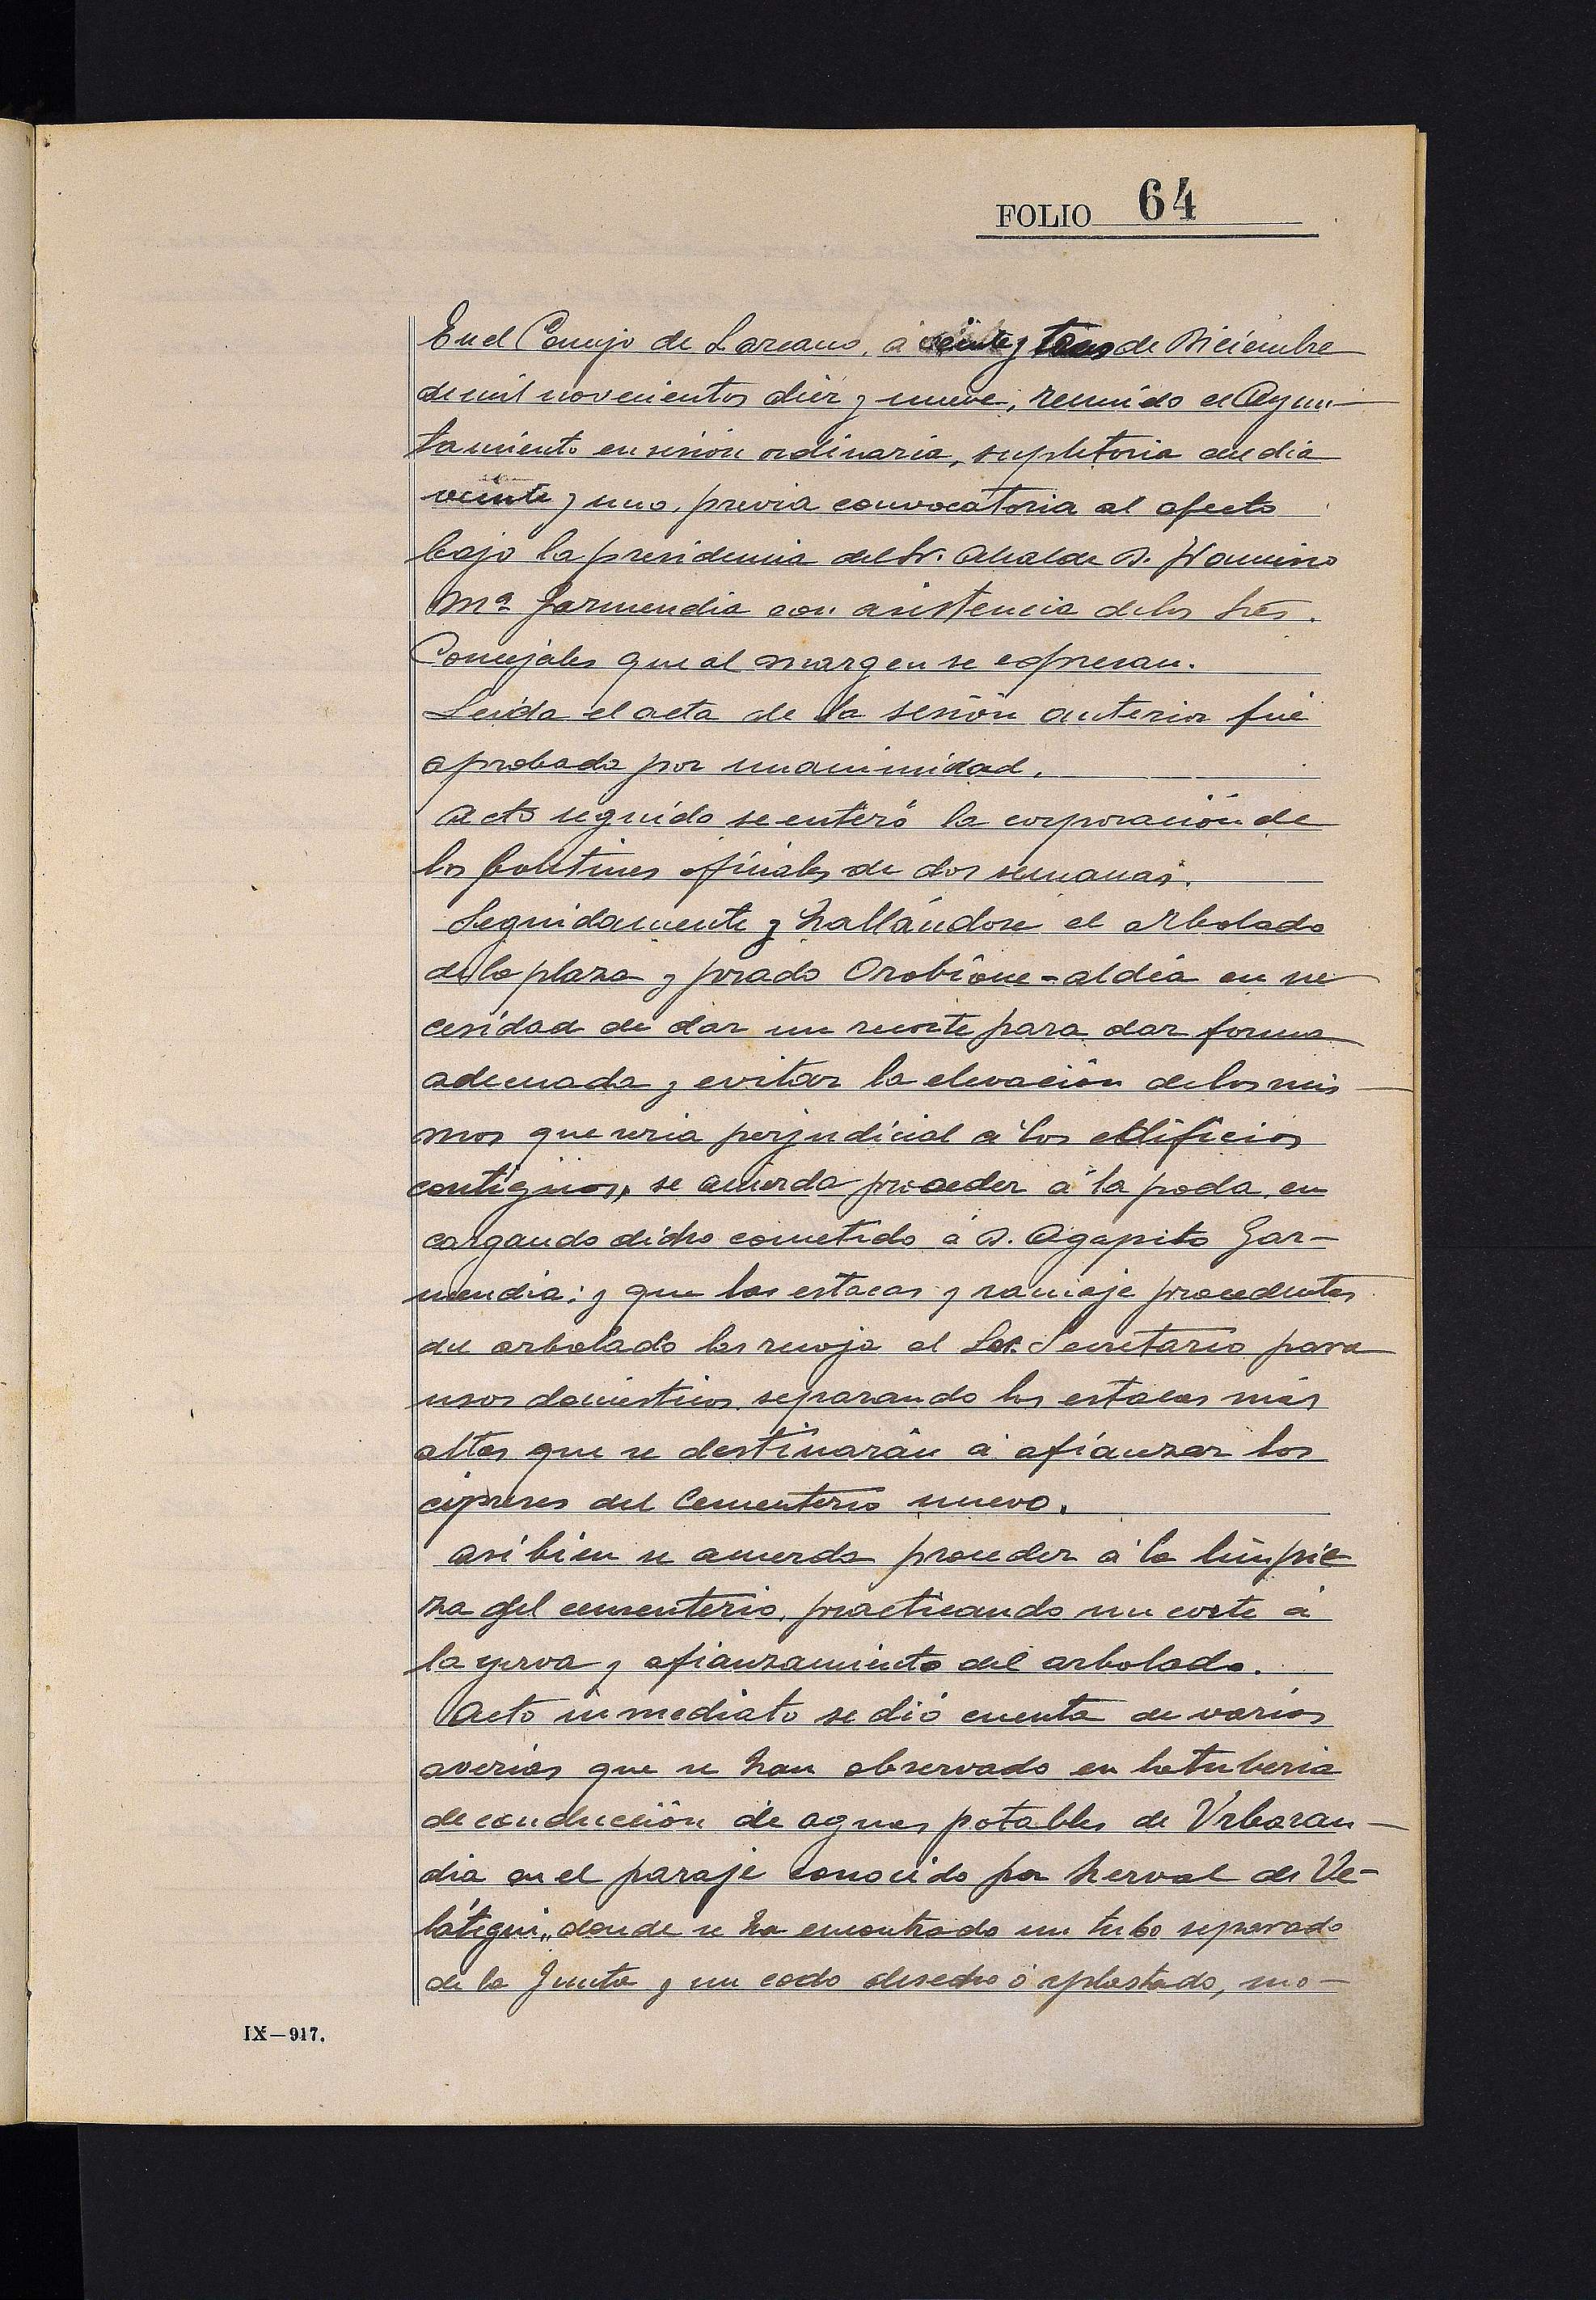 FOLIO 64
En el Concejo de Lazcano, á veinte y tres de Diciembre
de mil novecientos diez y nueve, reunido el Ayun-
tamiento en sesión ordinaria, supletoria del dia
veinte y uno, previa convocatoria al efecto
bajo la presidencia del Sr. Alcalde D.
Mª Garmendia con asistencia de los Sres.
Concejales que al margen se expresan.
Leida el acta de la sesión anterior fué
aprobada por unanimidad.
Acto seguido se enteró la corporación de
los boletines oficiales de dos semanas.
Seguidamente y hallándose el arbolado
de la plaza y prado Orobione-aldea en ne
cesidad de dar un recorte para dar forma
adecuada y evitar la elevación de los mis
mos que seria perjudicial á los edificios
contiguos, se acuerda proceder á la poda, en
cargando dicho cometido á D. Agapito Gar-
mendia; y que las estacas y ramaje procedentes
del arbolado las recoja el Sor. Secretario para
usos domésticos separando las estacas más
altas que se destinarán á afianzar los
cipreses del Cementerio nuevo.
Asi bien se acuerda proceder á la limpie
za del cementerio, practicando un corte á
la yerva y afianzamiento del arbolado.
Acto inmediato se dió cuenta de varias
averias que se han observado en la tuberia
de conducción de aguas potables de Urbaran-
dia en el paraje conocido por herval de Ve-
látegui,, donde se ha encontrado un tubo separado
de la Junta y un codo desecho ó aplastado, mo-
IX—917.